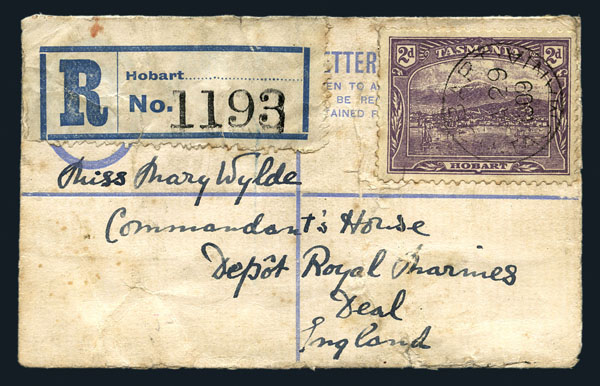 R
Hobart
No. 1193
ETTER
EN TO A
BE RE
TAINED F
2d TASMANIA 2d
HOBART
29
09
Miss Mary Wylde
Commandant's House
Depôt Royal Marines
Deal
England